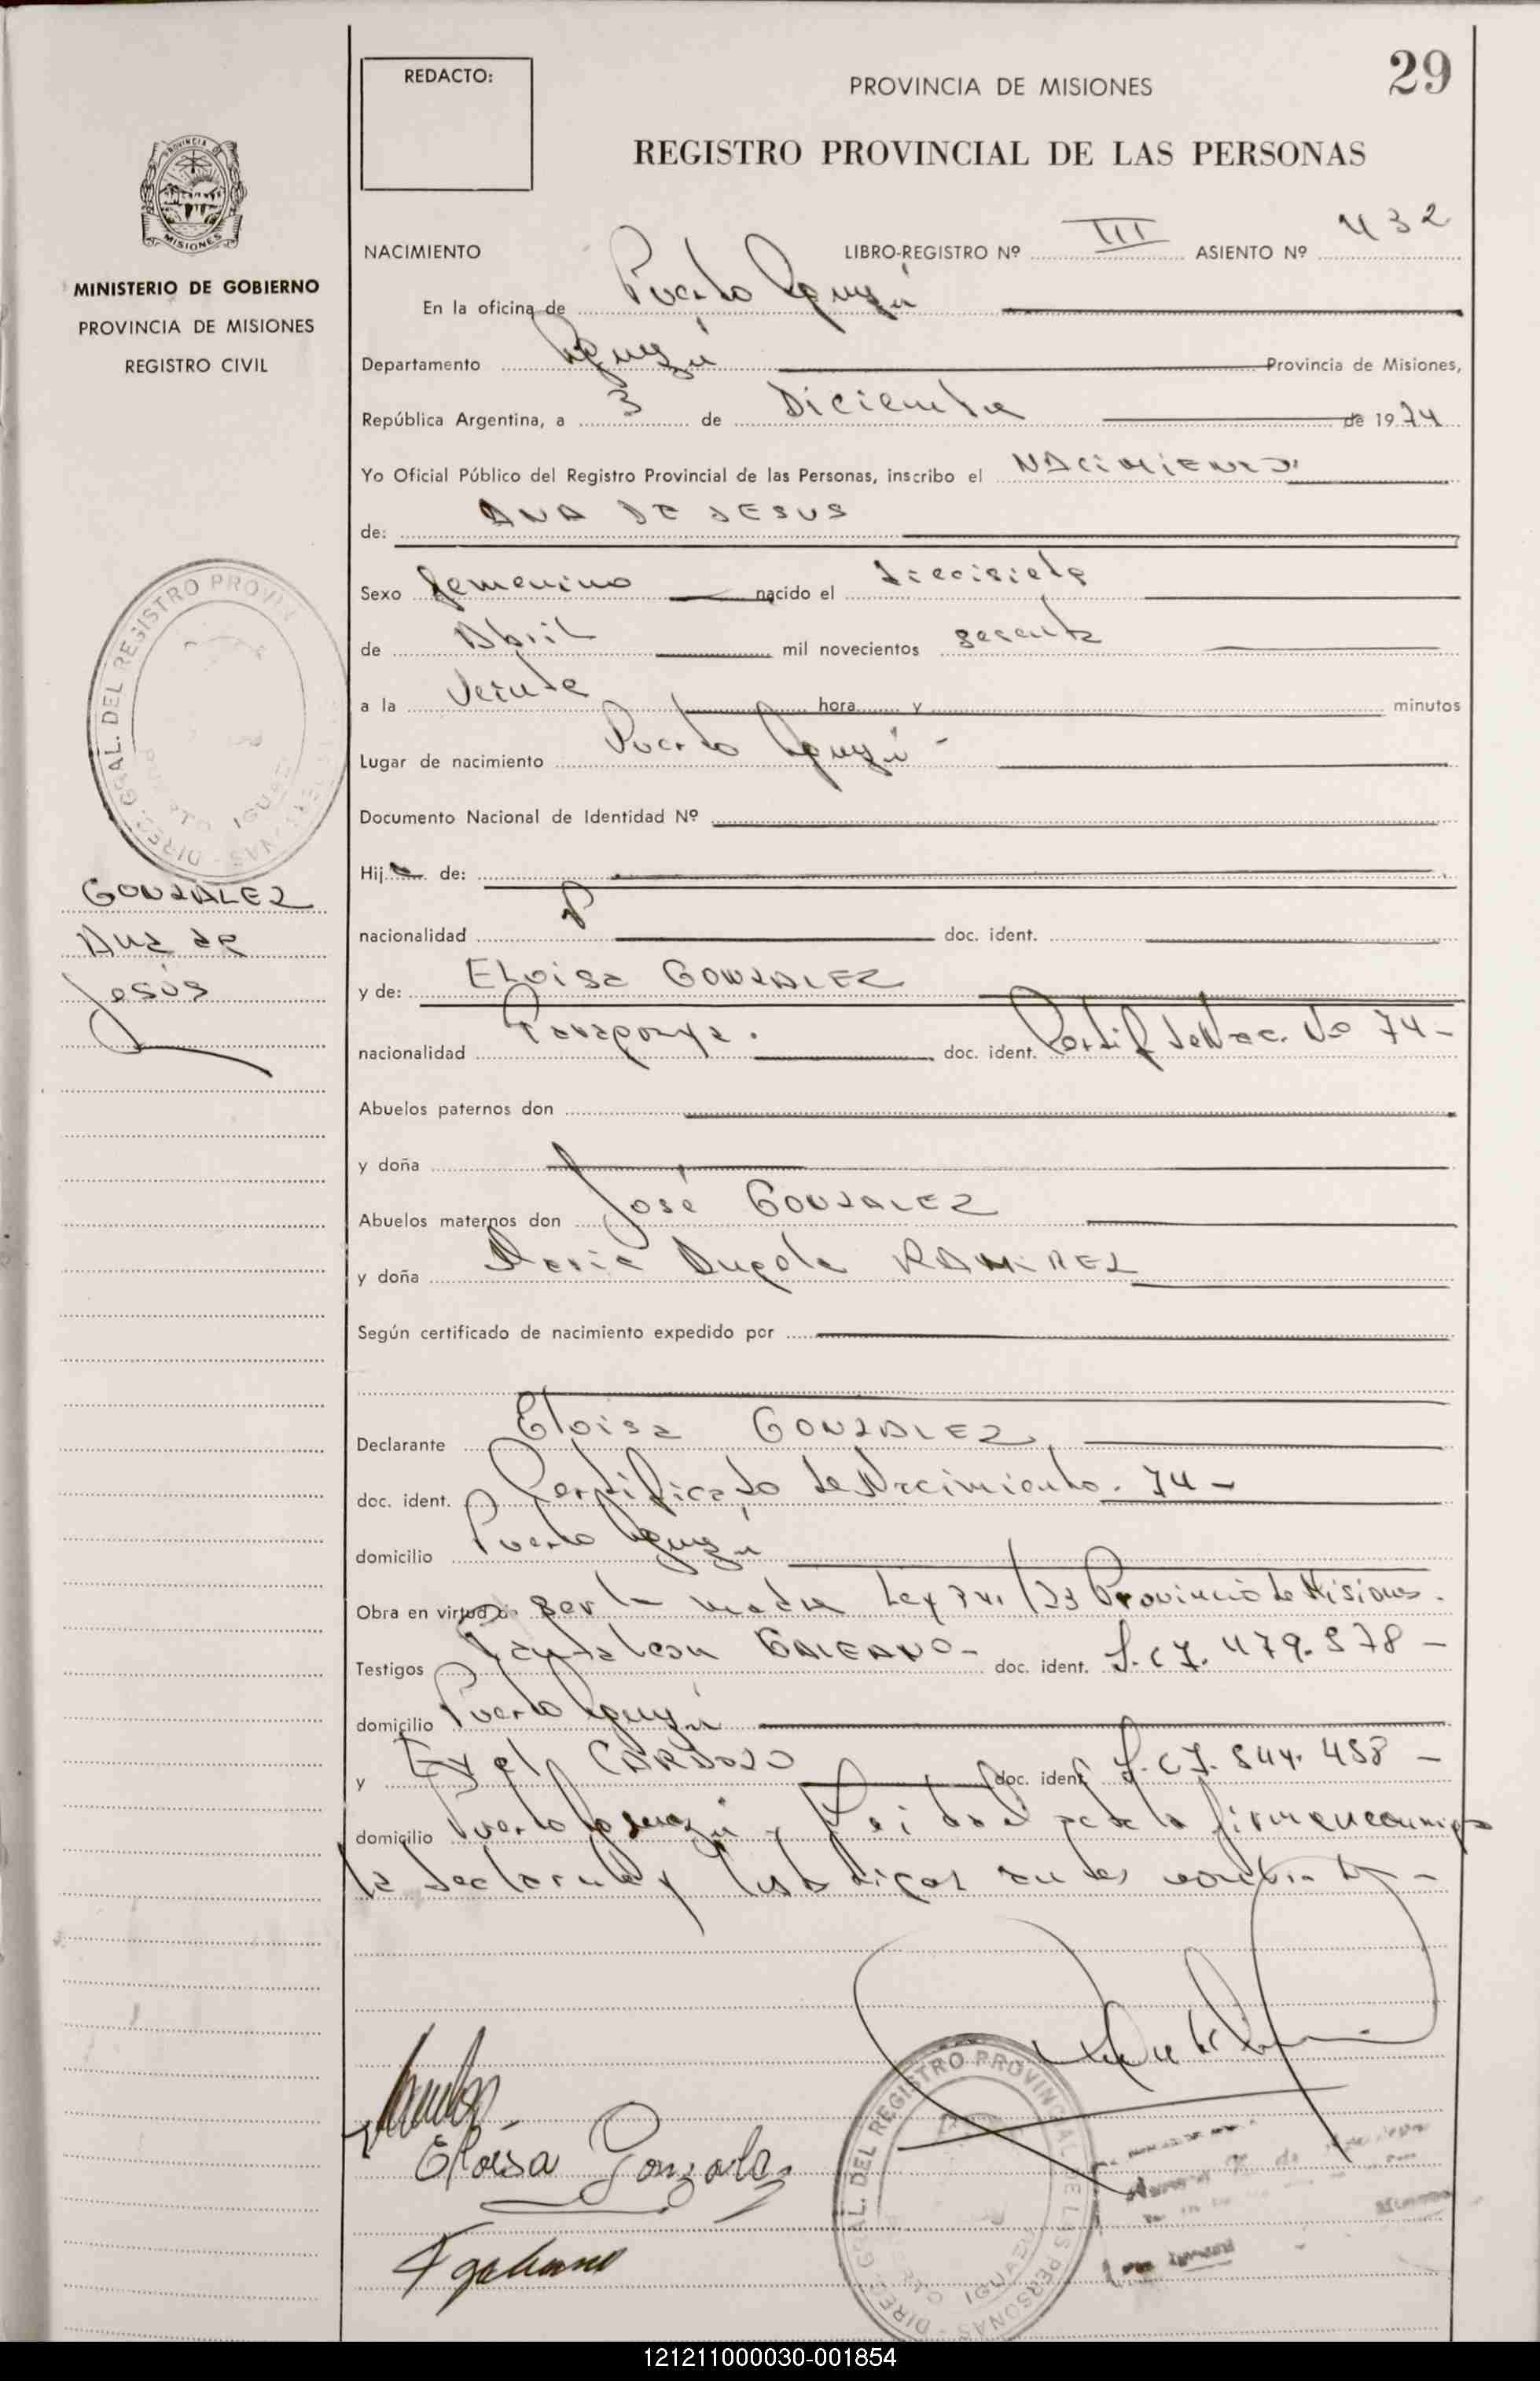 REDACTO:
PROVINCIA DE MISIONES
29
REGISTRO PROVINCIAL DE LAS PERSONAS
PROVINCIA
MISIONES
MINISTERIO DE GOBIERNO
PROVINCIA DE MISIONES
REGISTRO CIVIL
NACIMIENTO LIBRO-REGISTRO Nº III ASIENTO Nº 432
En la oficina de Puerto Iguazú
Departamento Iguazú Provincia de Misiones,
República Argentina, a 3 de Diciembre de 1974
Yo Oficial Público del Registro Provincial de las Personas, inscribo el NACIMIENTO
de: ANA DE JESUS
Sexo femenino nacido el diecisiete
de Abril mil novecientos sesenta
a la veinte hora y minutos
Lugar de nacimiento Puerto Iguazú -
Documento Nacional de Identidad Nº
Hija de:
nacionalidad doc. ident.
y de: Eloisa GONZALEZ
nacionalidad Paraguaya. doc. ident. Certif de Nac. No 74 -
Abuelos paternos don
y doña
Abuelos maternos don José GONZALEZ
y doña Maria RAMIREZ
Según certificado de nacimiento expedido por
Declarante Eloisa GONZALEZ
doc. ident. Certificado de Nacimiento. 74 -
domicilio Puerto Iguazú
Obra en virtud de ser la madre Ley /23 Provincia de Misiones.
Testigos Pantaleon GALEANO - doc. ident. 479.578 -
domicilio Puerto Iguazú
y CARDOZO doc. ident. 844.458 -
domicilio Puerto Iguazú - Leida el acta la firman conmigo
la declarante y testigos
GONZALEZ
Ana de
Jesús
DIREC. GRAL. DEL REGISTRO PROVI
IGUAZU
Eloisa Gonzalez
DIREC. GRAL. DEL REGISTRO PROVINCIAL DE LAS PERSONAS
PUERTO IGUAZU
121211000030-001854